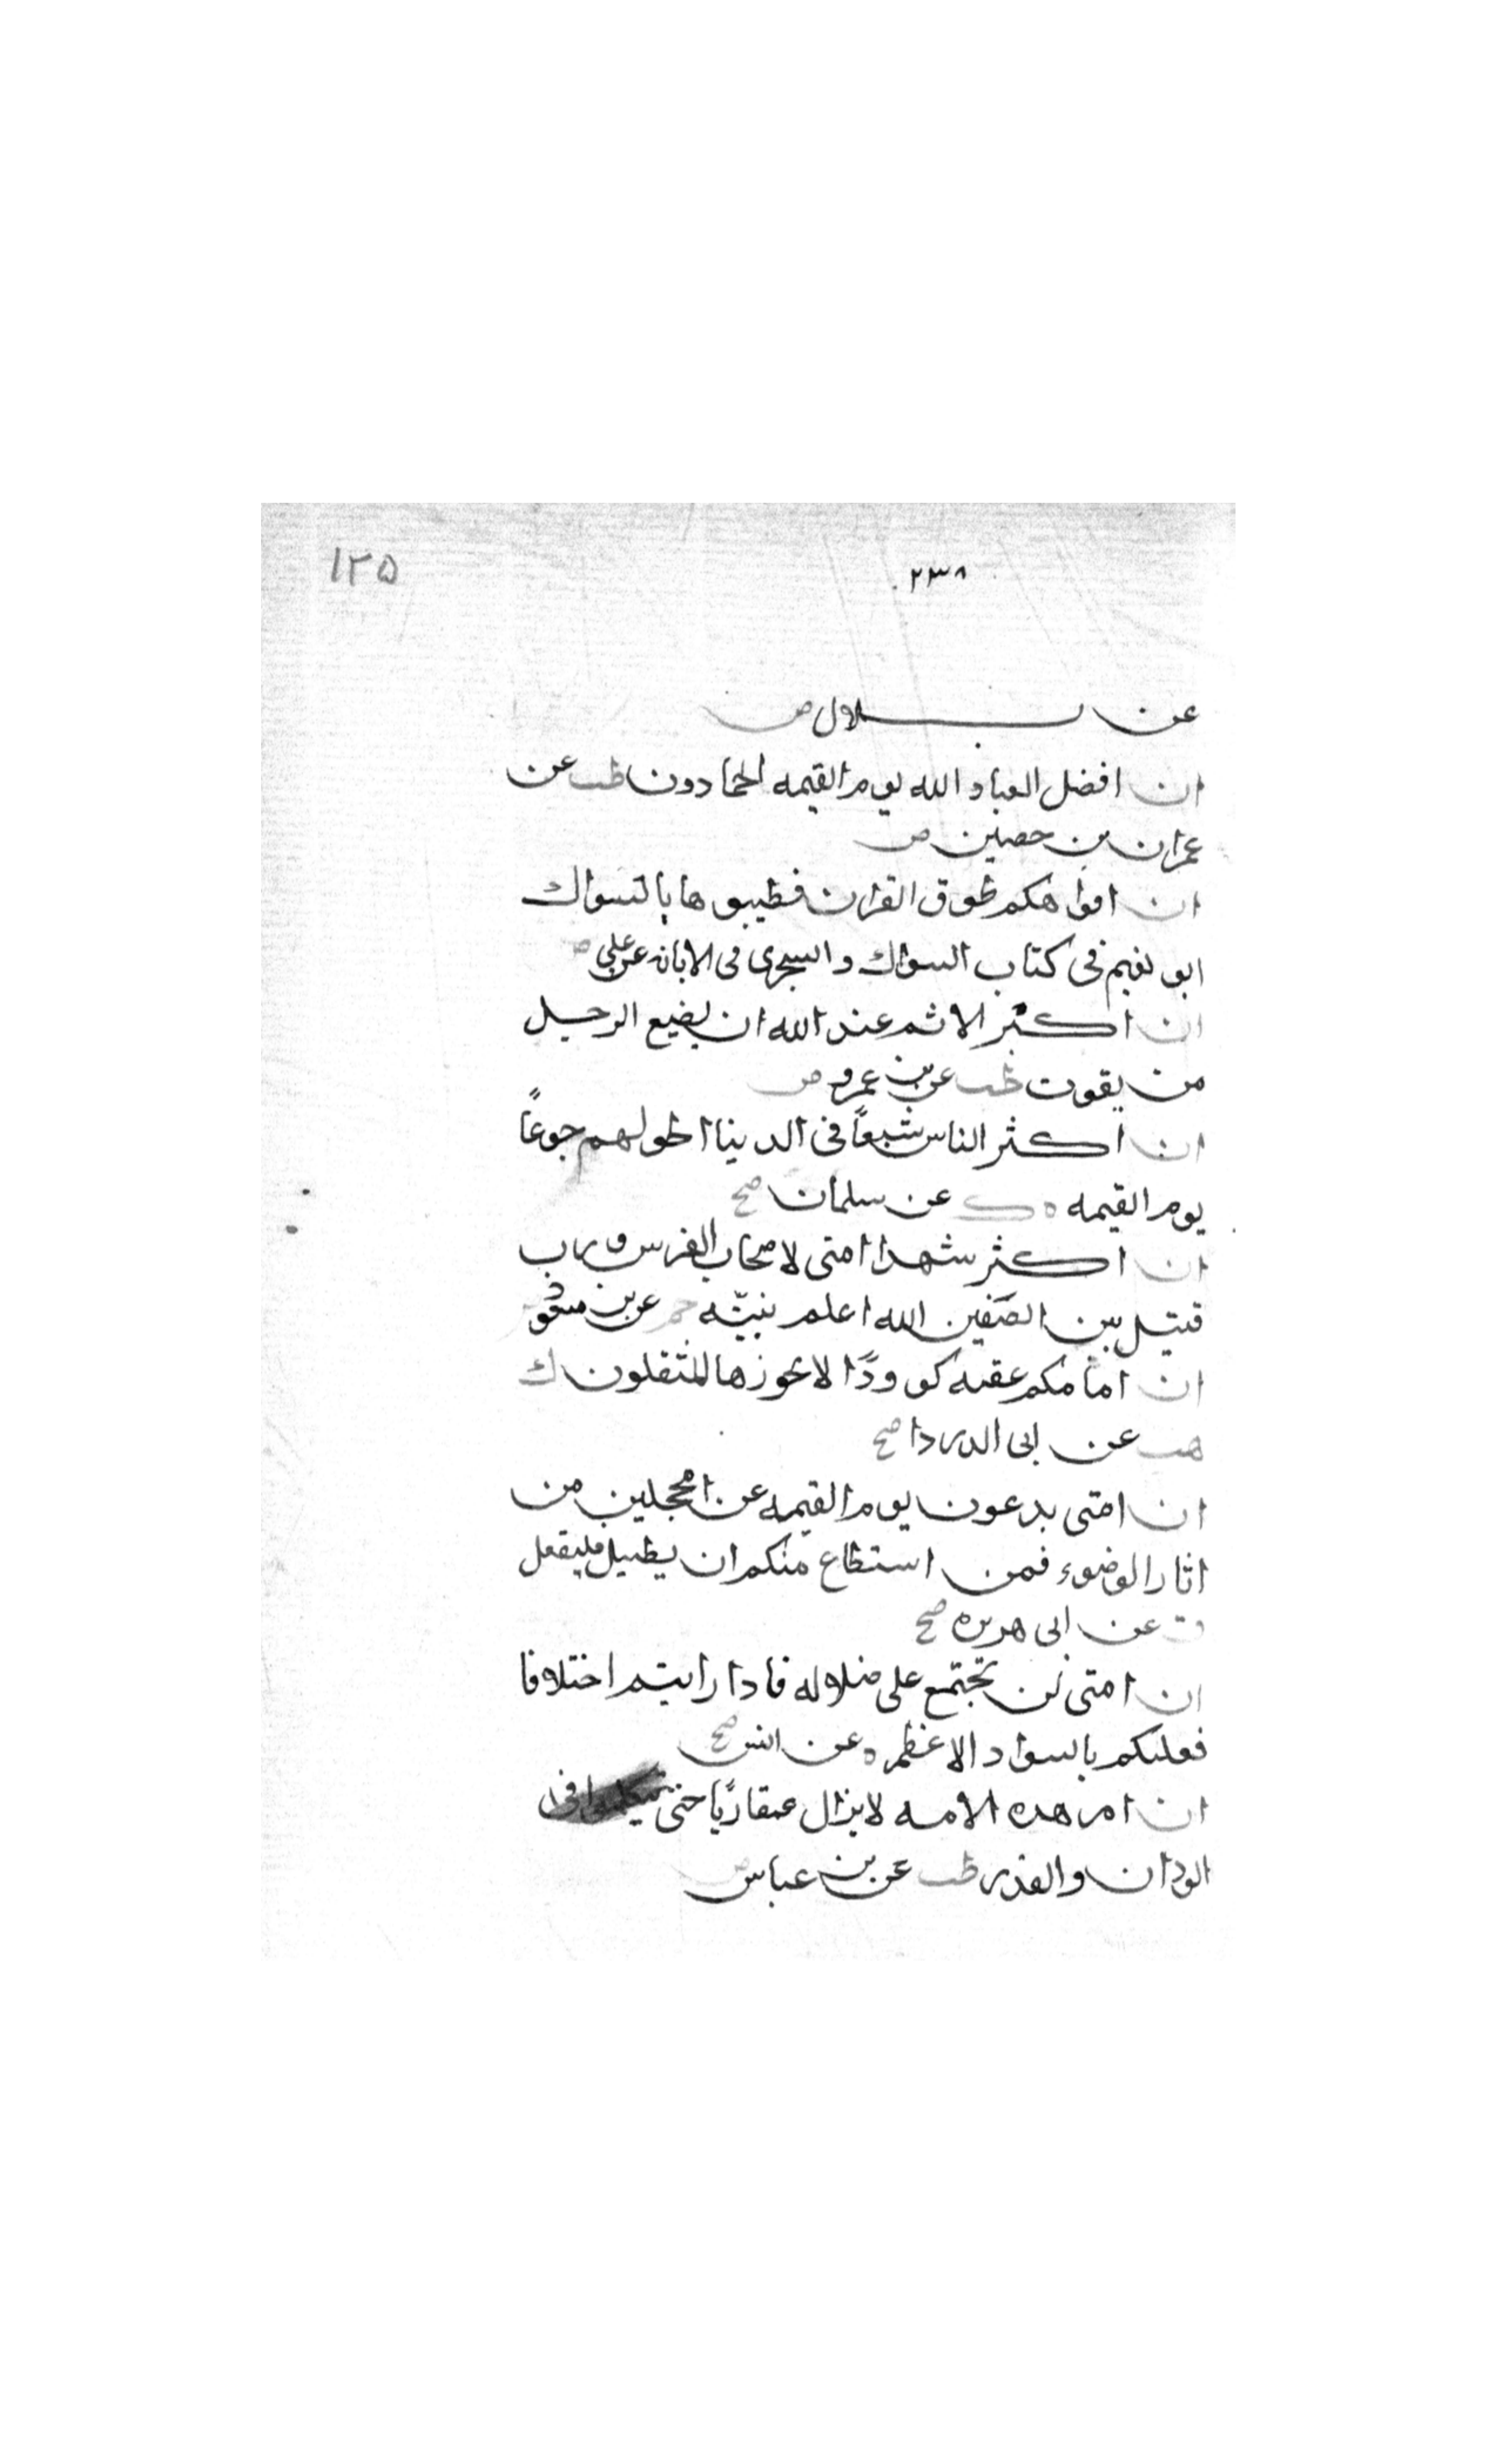 ١٢٥
٢٣٨
عن بلال ض
ان افضل العباد الله يوم القيمه الحمادون طب عن
عمران بن حصين ض
ان افواهكم طوق القران فطيبوها بالسواك
ابو نعيم فى كتاب السواك والسجزى فى الابانه عن على ض
ان اكبر الاثم عند الله ان يضيع الرجل
من يقوت طب عن بن عمرو ض
ان اكثر الناس شبعًا فى الدنيا اطولهم جوعًا
يوم القيمه ه ك عن سلمان صح
ان اكثر شهدا امتى لاصحاب الفرس ورب
قتيل بين الصَفين الله اعلم بنيّته حم عن بن مسعود
ان امامكم عقبه كوودًا لا يجوزها المثقلون ك
هب عن ابى الدردا صح
ان امتى يدعون يوم القيمه عن ا محجلين من
اثار الوضوء فمن استطاع منكم ان يطيل فليفعل
ق عن ابى هريره صح
ان امتى لن تجتمع على ضلاله فاذا رايتم اختلافا
فعليكم بالسواد الاعظم ه عن انس صح
ان امر هده الامه لا يزال مقاربًا حتى يتكلموا فى
الودان والقدر طب عن بن عباس ض